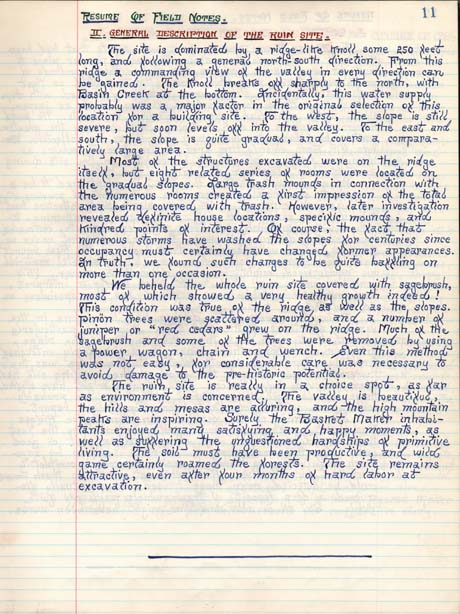 11
RESUME OF FIELD NOTES.
II. GENERAL DESCRIPTION OF THE RUIN SITE.
The site is dominated by a ridge-like knoll some 250 feet
long, and following a general north-south direction. From this
ridge a commanding view of the valley in every direction can
be gained. The knoll breaks off sharply to the north, with
Basin Creek at the bottom. Incidentally, this water supply
probably was a major factor in the original selection of this
location for a building site. To the west, the slope is still
severe, but soon levels off into the valley. To the east and
south, the slope is quite gradual, and covers a compara-
tively large area.
Most of the structures excavated were on the ridge
itself, but eight related series of rooms were located on
the gradual slopes. Large trash mounds in connection with
the numerous rooms created a first impression of the total
area being covered with trash. However, later investigation
revealed definite house locations, specific mounds, and
kindred points of interest. Of course, the fact that
numerous storms have washed the slopes for centuries since
occupancy must certainly have changed former appearances.
In truth, we found such changes to be quite baffling on
more than one occasion.
We beheld the whole ruin site covered with sagebrush,
most of which showed a very healthy growth indeed!
This condition was true of the ridge as well as the slopes.
Pinon trees were scattered around, and a number of
juniper or "red cedars" grew on the ridge. Much of the
sagebrush and some of the trees were removed by using
a power wagon, chain and wench. Even this method
was not easy, for considerable care was necessary to
avoid damage to the pre-historic potential.
The ruin site is really in a choice spot, as far
as environment is concerned. The valley is beautiful,
the hills and mesas are alluring, and the high mountain
peaks are inspiring. Surely the Basket Maker inhabi-
tants enjoyed many satisfying and happy moments, as
well as suffering the unquestioned hardships of primitive
living. The soil must have been productive, and wild
game certainly roamed the forests. The site remains
attractive, even after four months of hard labor at
excavation.